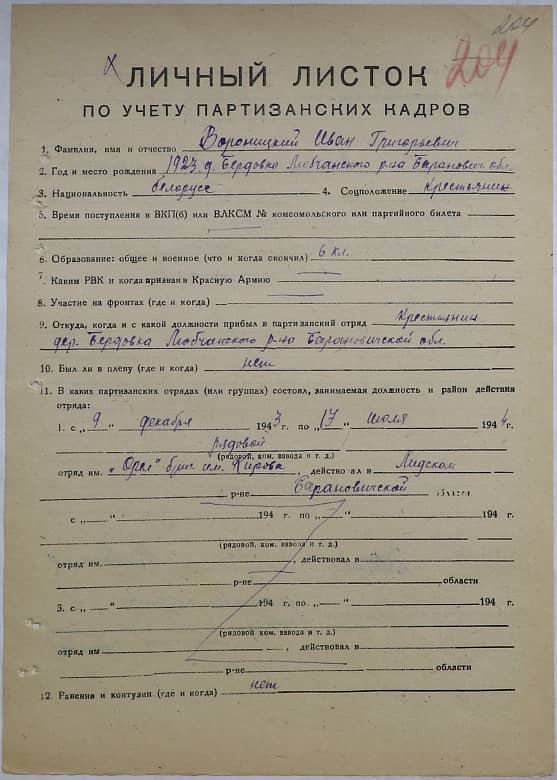 204
204
ЛИЧНЫЙ ЛИСТОК
ПО УЧЕТУ ПАРТИЗАНСКИХ КАДРОВ
1. Фамилия, имя и отчество Вороницкий Иван Григорьевич
2. Год и место рождения 1923 д. Бердовка Любчанского р-на Баранович. обл.
3. Национальность белорусс 4. Соцположение Крестьянин
5. Время поступления в ВКП(б) или ВЛКСМ № комсомольского или партийного билета
6. Образование: общее и военное (что и когда окончил) 6 кл.
7. Каким РВК и когда призван в Красную Армию
8. Участие на фронтах (где и когда)
9. Откуда, когда и с какой должности прибыл в партизанский отряд Крестьянин
дер. Бердовка Любчанского р-на Барановичской обл.
10. Был ли в плену (где и когда) нет
11. В каких партизанских отрядах (или группах) состоял, занимаемая должность и район действия
отряда:
1. с „ 9 “ декабря 1943 г. по „ 17 “ июля 1944 г.
рядовой
(рядовой, ком. взвода и т. д.)
отряд им. „Орел“ бриг. им. Кирова, действовал в Лидском
р-не Барановичской области
с „ “ 194 г. по „ “ 194 г.
(рядовой, ком. взвода и т. д.)
отряд им. , действовал в
р-не области
3. с „ “ 194 г. по „ “ 194 г.
(рядовой ком. взвода и т. д.)
отряд им , действовал в
р-не области
12. Ранения и контузии (где и когда) нет